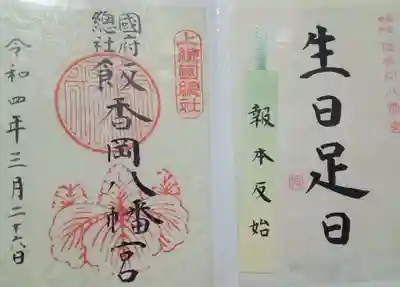 上総國総社
國府
總社
飯香岡八幡宮
令和四年三月二十六日
生日足日
報本反始